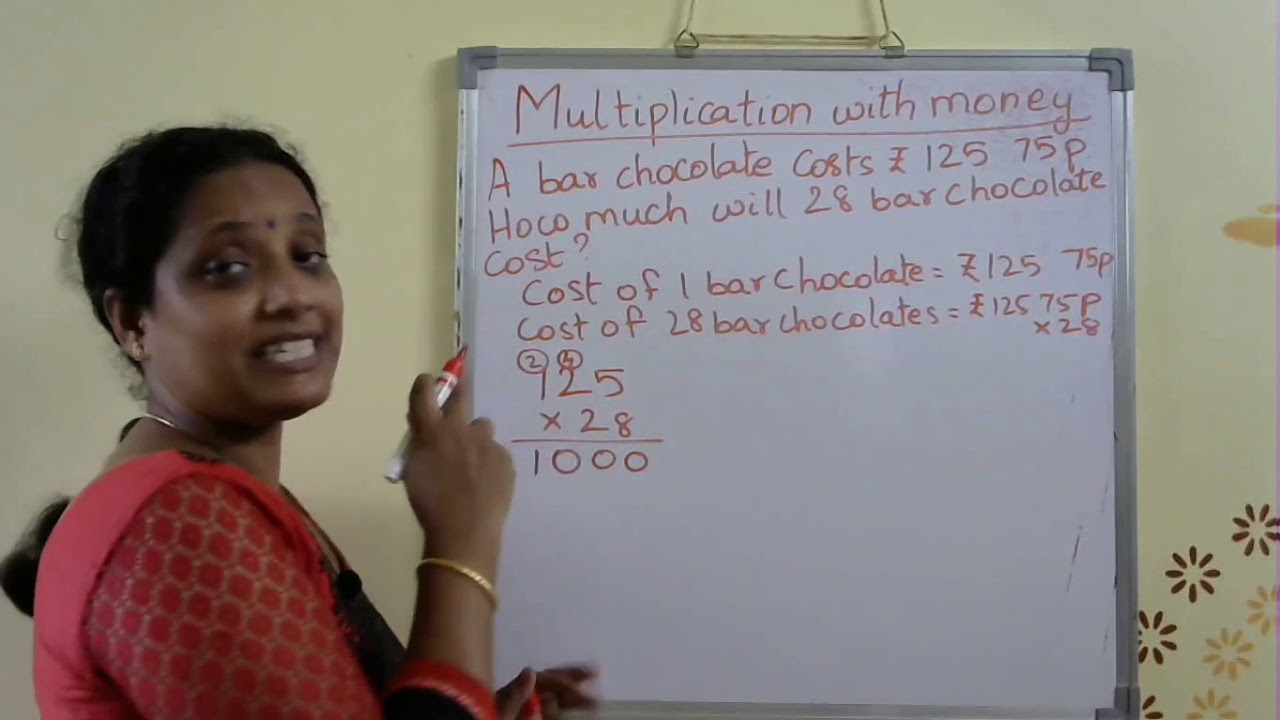 Multiplication with money
A bar chocolate costs ₹ 125 75p
How much will 28 bar chocolate
cost?
Cost of 1 bar chocolate = ₹ 125 75p
Cost of 28 bar chocolates = ₹ 125 75p
× 28
2 4
125
× 28
1000